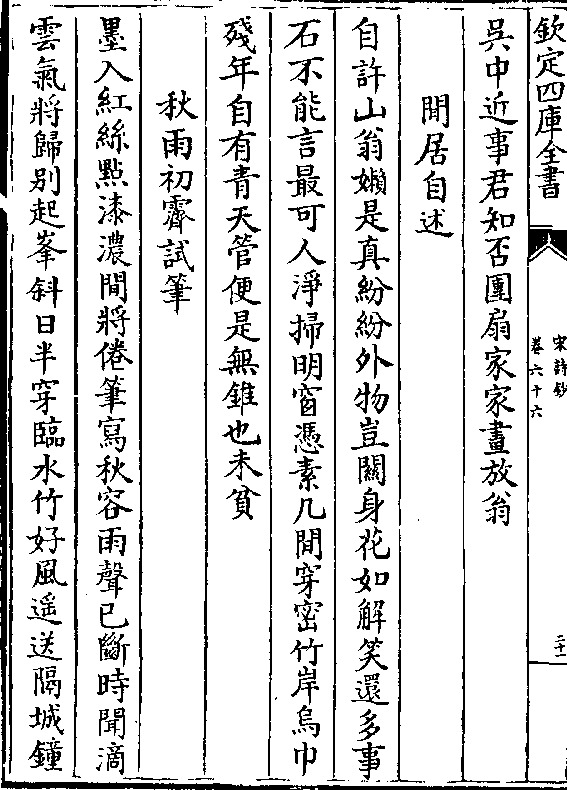 欽定四庫全書
宋詩鈔
卷六十六
二十
吳中近事君知否團扇家家畫放翁
閒居自述
自許山翁嬾是真紛紛外物豈關身花如解笑還多事
石不能言最可人淨掃明窗憑素几閒穿密竹岸烏巾
殘年自有青天管便是無錐也未貧
秋雨初霽試筆
墨入紅絲點漆濃閒將倦筆寫秋容雨聲已斷時聞滴
雲氣將歸别起峯斜日半穿臨水竹好風遥送隔城鐘